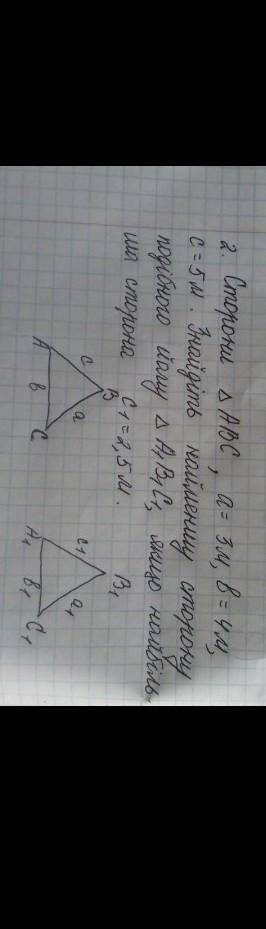 2. Сторони △ ABC, a = 3м, b = 4м,
c = 5м. Знайдіть найменшу сторону
подібного йому △ A₁B₁C₁, якщо найбіль-
ша сторона C₁ = 2,5м.
B B₁
c a c₁ a₁
A b C A₁ b₁ C₁